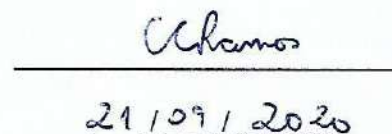 CCRamos
21/09/2020